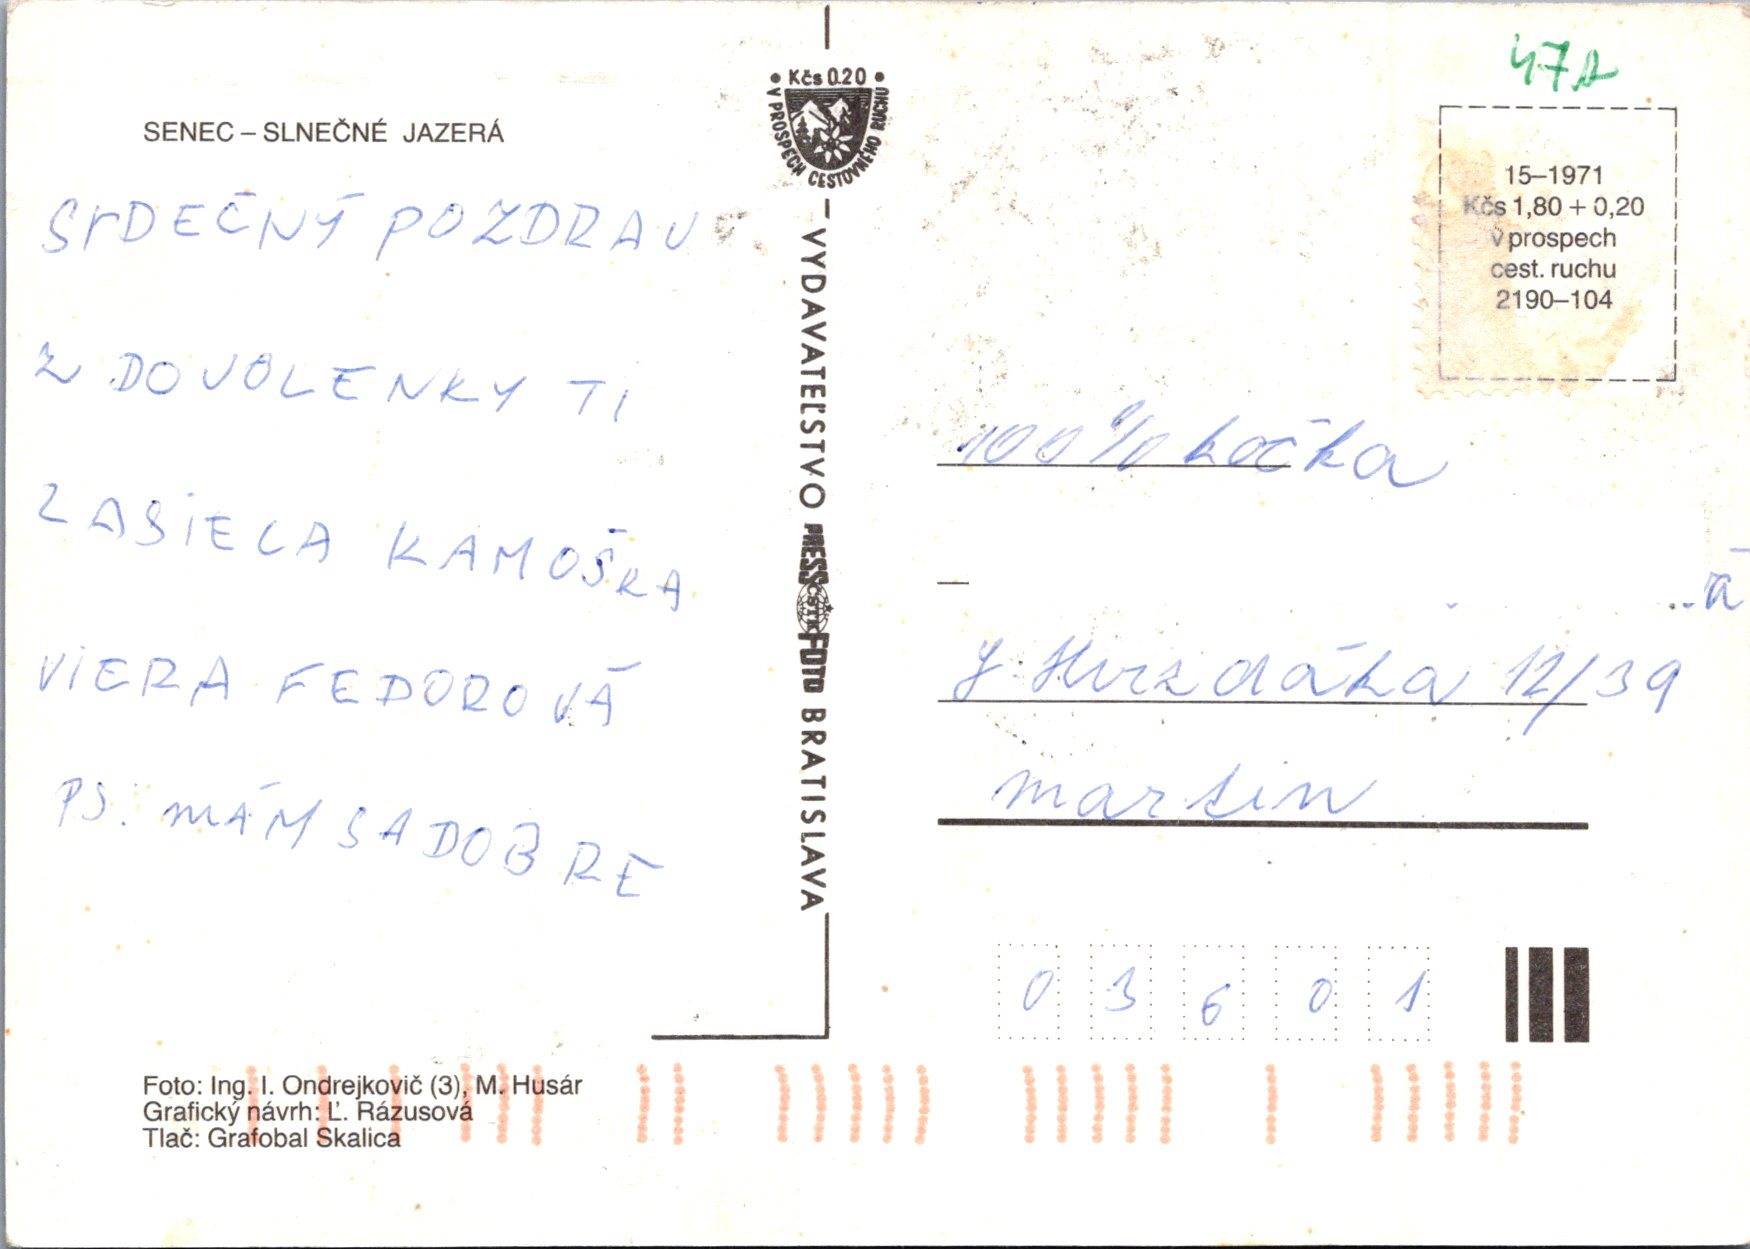 SENEC – SLNEČNÉ JAZERÁ
SRDEČNÝ POZDRAV
Z DOVOLENKY TI
ZASIELA KAMOŠKA
VIERA FEDOROVÁ
PS. MÁM SA DOBRE
Foto: Ing. I. Ondrejkovič (3), M. Husár
Grafický návrh: Ľ. Rázusová
Tlač: Grafobal Skalica
• Kčs 0.20 •
V PROSPECH CESTOVNÉHO RUCHU
VYDAVATEĽSTVO PRESSFOTO BRATISLAVA
ČSTK
47A
15–1971
Kčs 1,80 + 0,20
v prospech
cest. ruchu
2190–104
100% kočka
á
J. Hvizdáka 12/39
Martin
03601